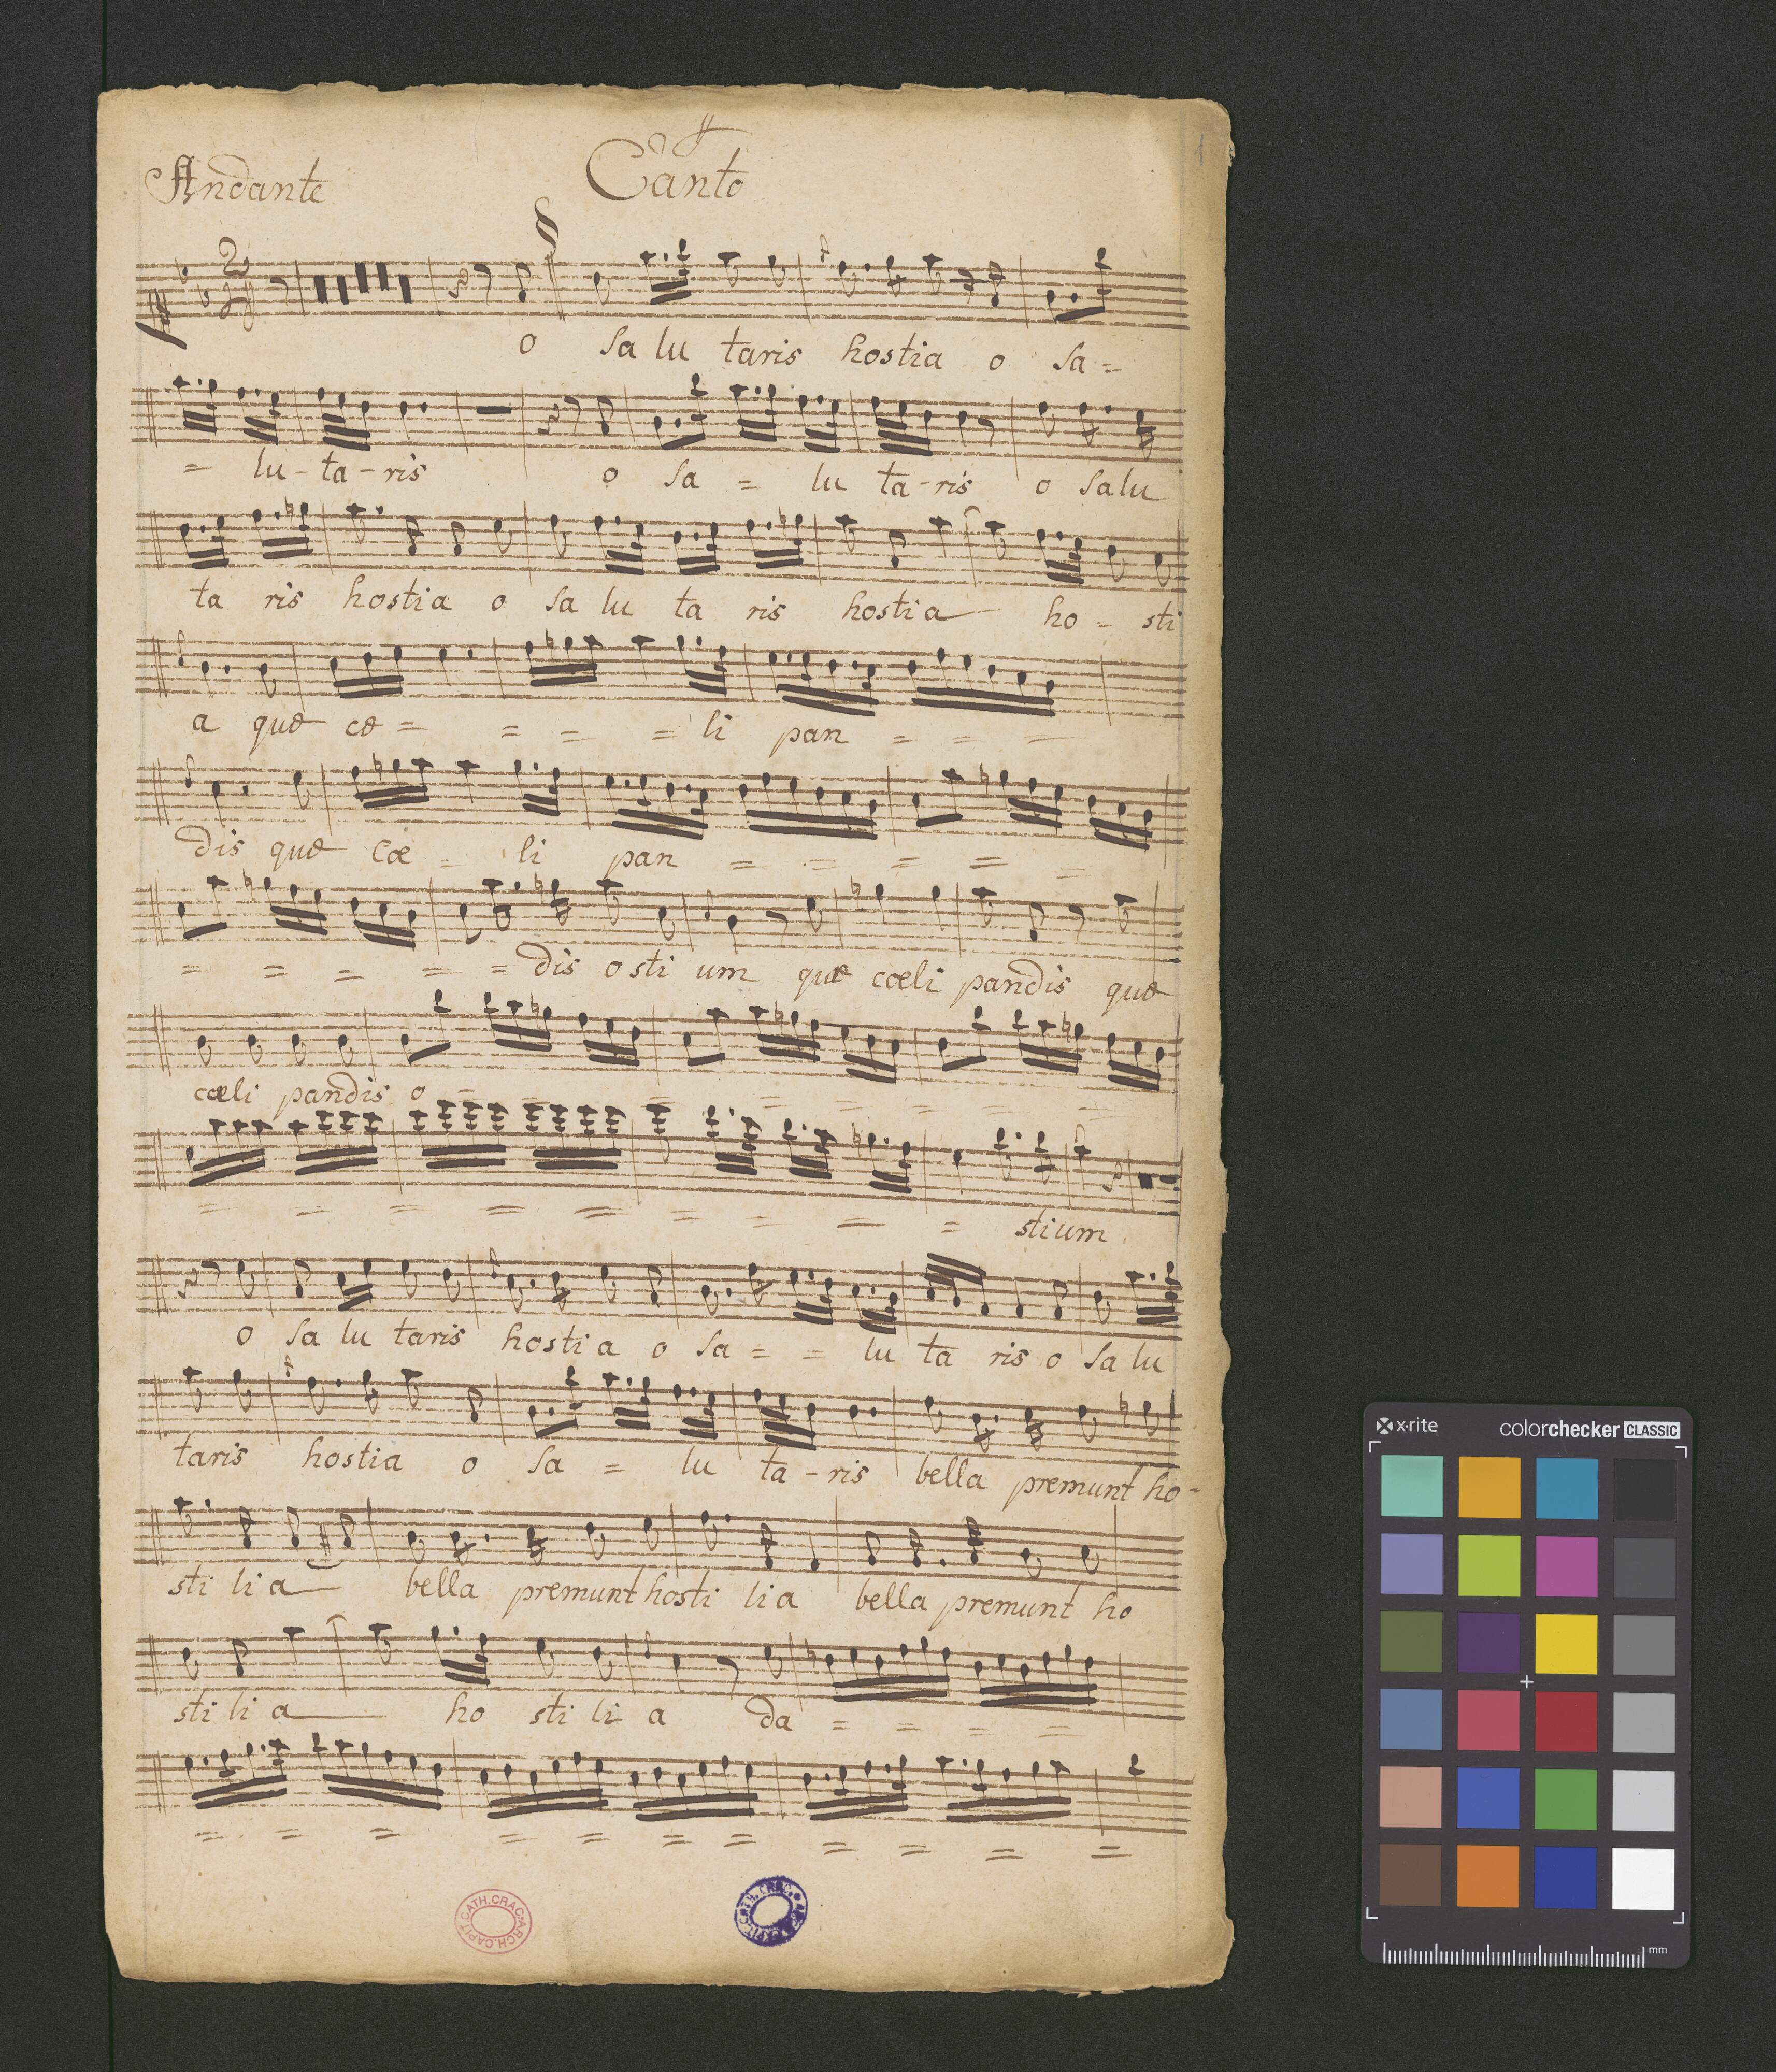 Andante Canto
1
2
o sa lu taris hostia o sa =
= lu - ta - ris o sa = lu ta - ris o salu
ta ris hostia o sa lu ta ris hostia ho = sti
a quæ cæ = = = = li pan = = =
dis quæ cæ = li pan = = = = =
= = = = = dis o sti um quæ cœli pandis quæ
cœli pandis o = = = = = = =
= = = = = = = = = stium
o sa lu taris hostia o sa = = lu ta ris o sa lu
taris hostia o sa = lu ta - ris bella premunt ho-
sti li a bella premunt hosti li a bella premunt ho
sti li a ho sti li a da = = = =
= = = = = = = = = = =
ARCH. CAPIT. CATH. CRAC.
ARCH. CAPIT. CATH. CRAC.
x·rite colorchecker CLASSIC
mm